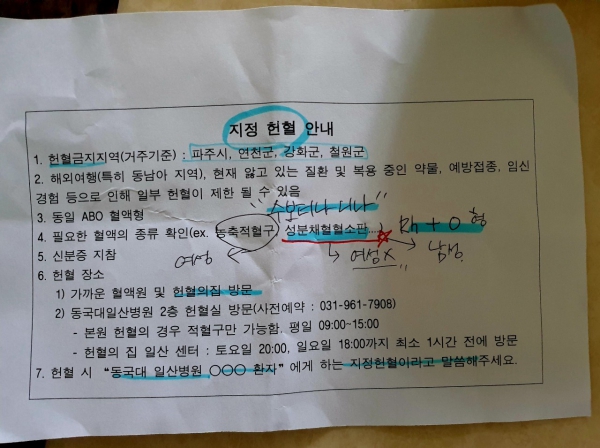 지정 헌혈 안내
1. 헌혈금지지역(거주기준) : 파주시, 연천군, 강화군, 철원군
2. 해외여행(특히 동남아 지역), 현재 앓고 있는 질환 및 복용 중인 약물, 예방접종, 임신
경험 등으로 인해 일부 헌혈이 제한 될 수 있음
3. 동일 ABO 혈액형
4. 필요한 혈액의 종류 확인(ex. 농축적혈구, 성분채혈혈소판...) Rh + O 형
여성 여성X 남성
5. 신분증 지참
6. 헌혈 장소
1) 가까운 혈액원 및 헌혈의집 방문
2) 동국대일산병원 2층 헌혈실 방문(사전예약 : 031-961-7908)
- 본원 헌혈의 경우 적혈구만 가능함, 평일 09:00~15:00
- 헌혈의 집 일산 센터 : 토요일 20:00, 일요일 18:00까지 최소 1시간 전에 방문
7. 헌혈 시 "동국대 일산병원 ○○○ 환자"에게 하는 지정헌혈이라고 말씀해주세요.